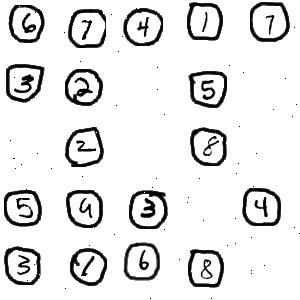 6 7 4 1 7
3 2 5
2 8
5 9 3 4
3 1 6 8